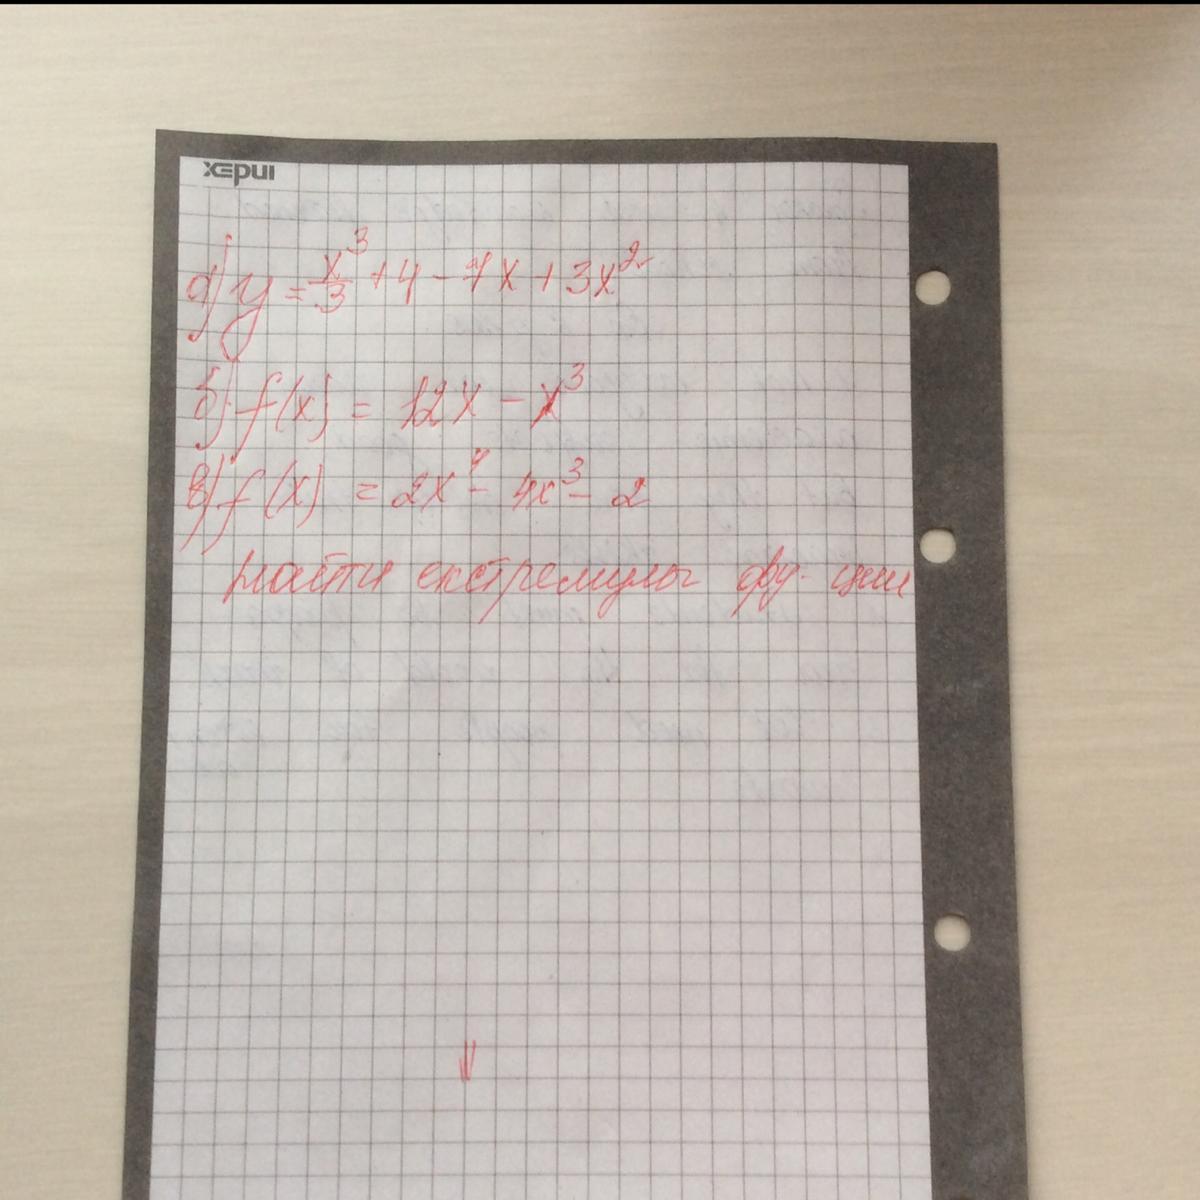 index
а) y = x³/3 + 4 - 7x + 3x²
б) f(x) = 12x - x³
в) f(x) = 2x⁴ - 4x³ - 2
найти екстремумы фу-ции